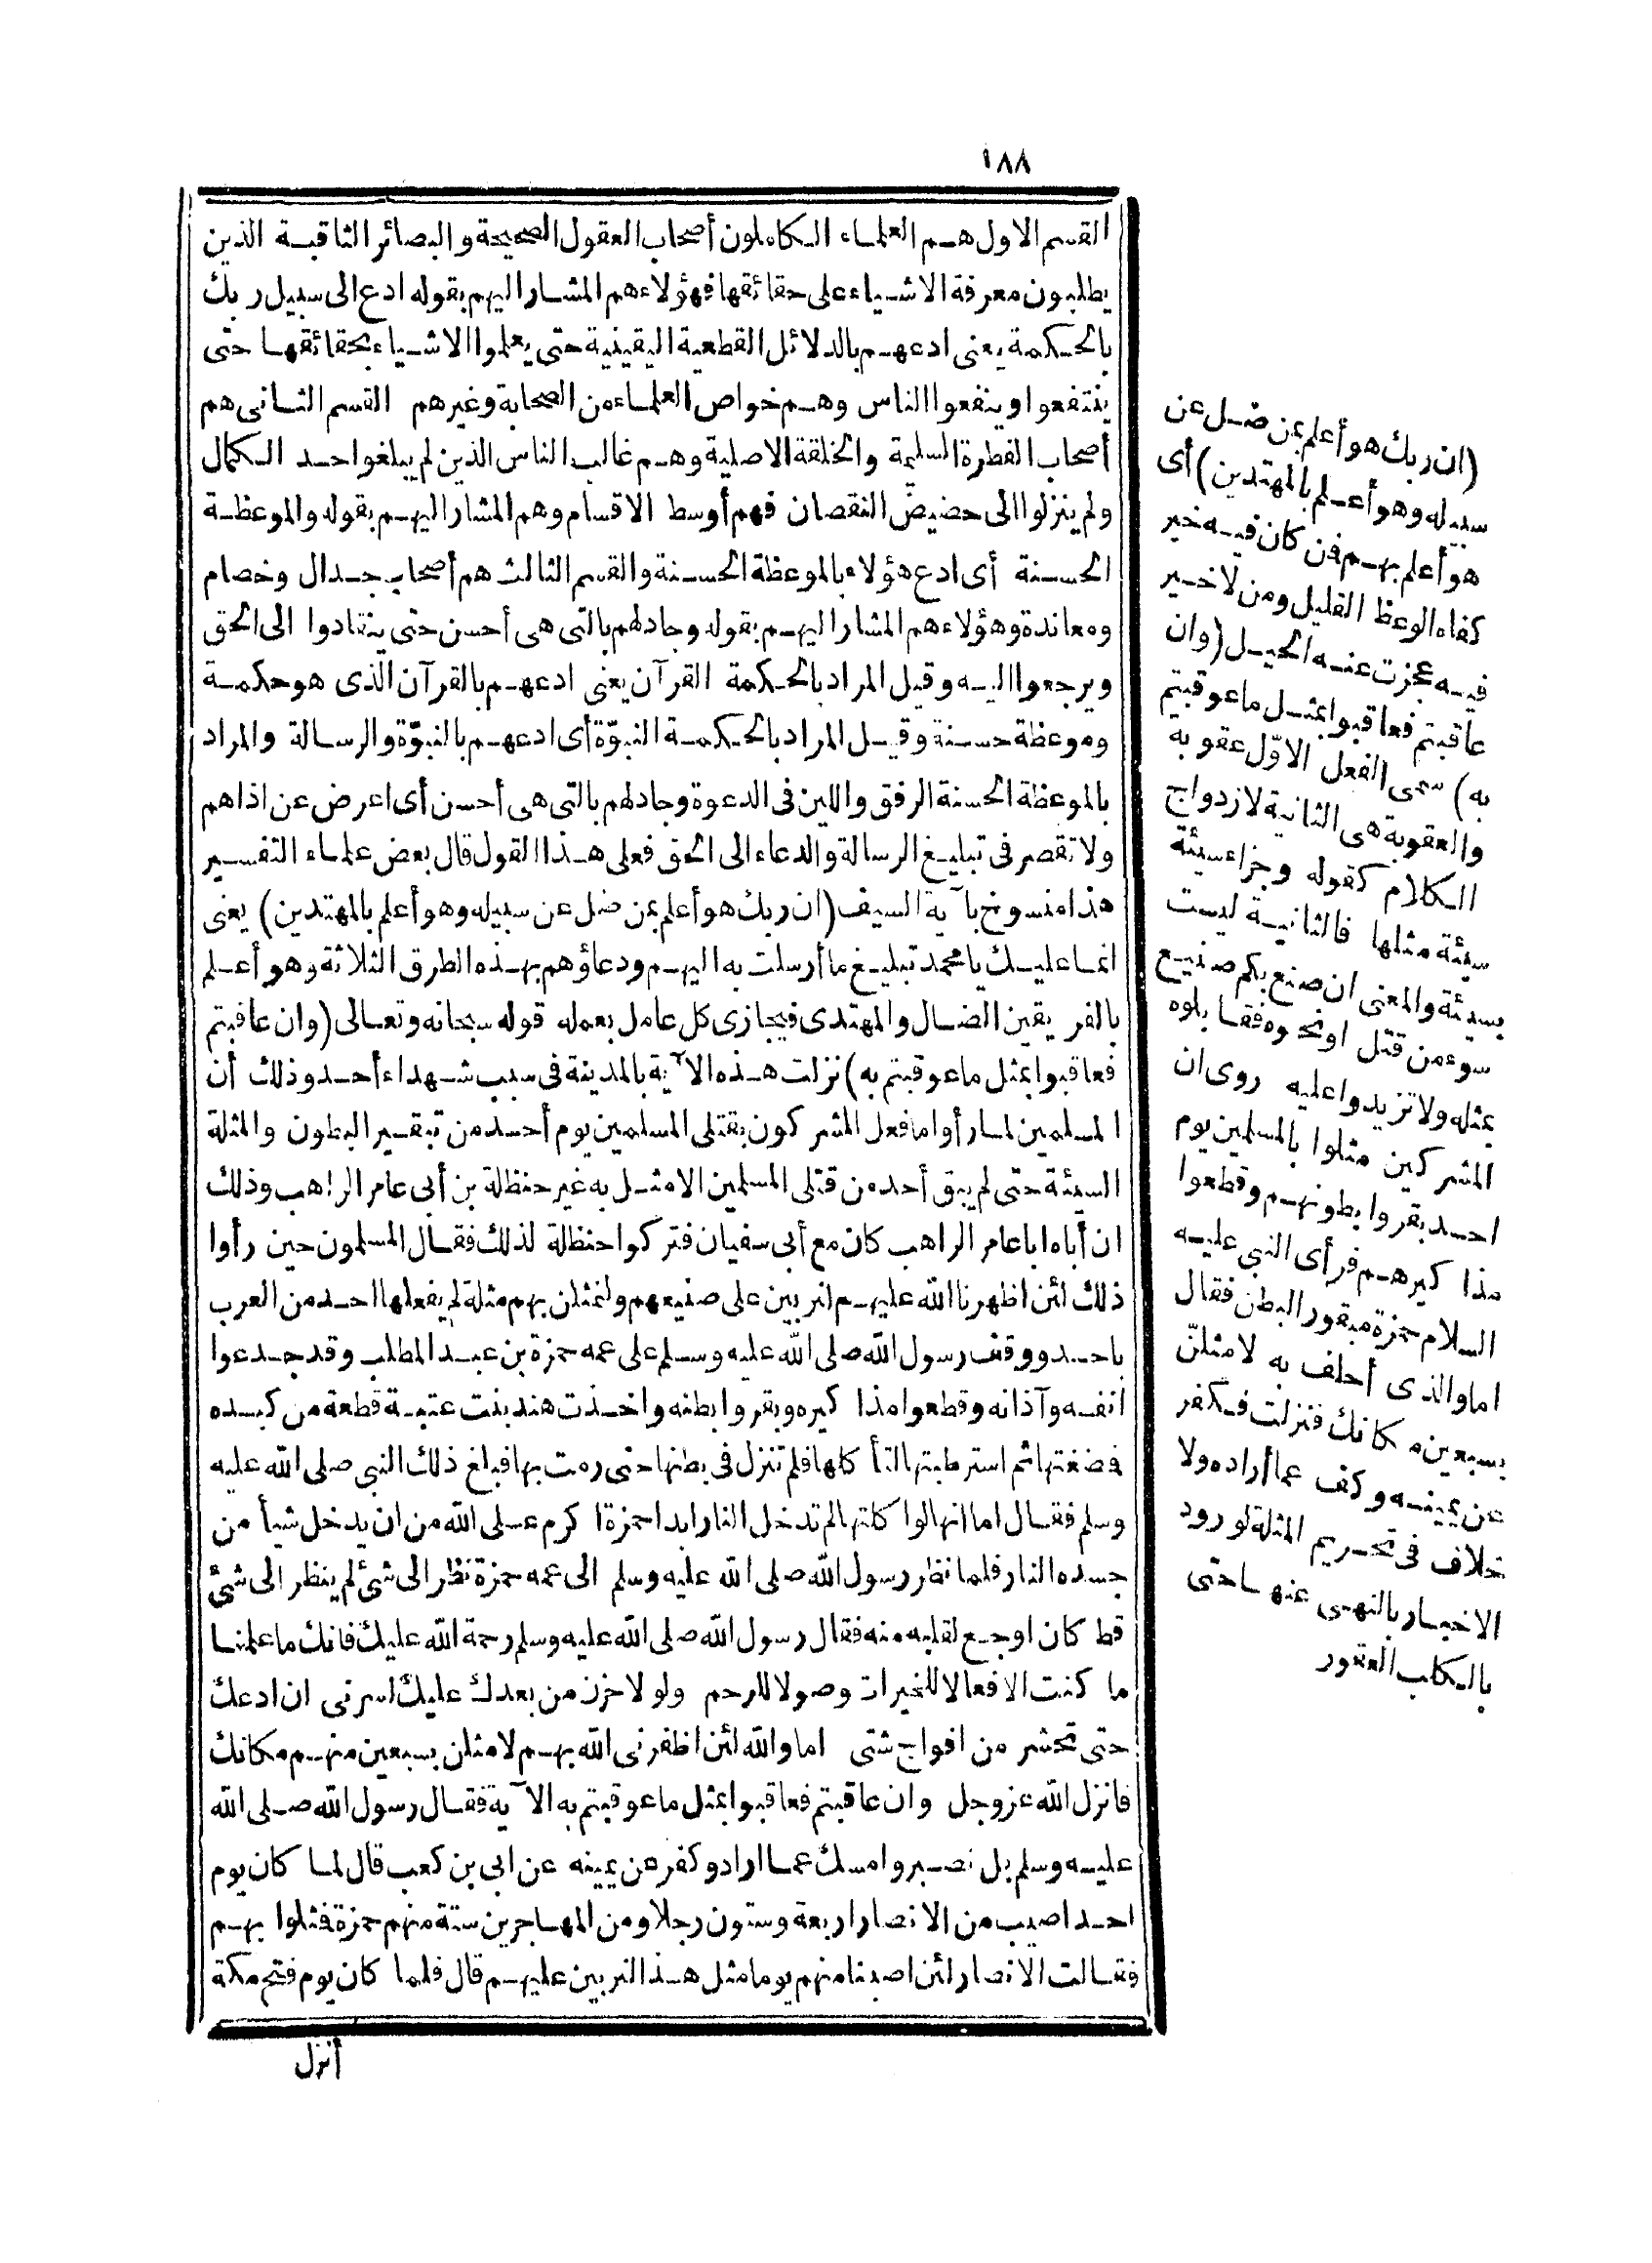 ١٨٨
القسم الاول هم العلماء الكاملون أصحاب العقول الصحيحة والبصائر الثاقبة الذين
يطلبون معرفة الاشياء على حقائقها فهؤلاء هم المشار اليهم بقوله ادع الى سبيل ربك
بالحكمة يعنى ادعهم بالدلائل القطعية اليقينية حتى يعلموا الاشياء بحقائقها حتى
ينتفعوا وينفعوا الناس وهم خواص العلماء من الصحابة وغيرهم القسم الثانى هم
أصحاب الفطرة السليمة والخلقة الاصلية وهم غالب الناس الذين لم يبلغوا حد الكمال
ولم ينزلوا الى حضيض النقصان فهم أوسط الاقسام وهم المشار اليهم بقوله والموعظة
الحسنة أى ادع هؤلاء بالموعظة الحسنة والقسم الثالث هم أصحاب جدال وخصام
ومعاندة وهؤلاء هم المشار اليهم بقوله وجادلهم بالتى هى أحسن حتى ينقادوا الى الحق
ويرجعوا اليه وقيل المراد بالحكمة القرآن يعنى ادعهم بالقرآن الذى هو حكمة
وموعظة حسنة وقيل المراد بالحكمة النبوّة أى ادعهم بالنبوّة والرسالة والمراد
بالموعظة الحسنة الرفق واللين فى الدعوة وجادلهم بالتى هى أحسن أى اعرض عن اذاهم
ولا تقصر فى تبليغ الرسالة والدعاء الى الحق فعلى هذا القول قال بعض علماء التفسير
هذا منسوخ بآية السيف (ان ربك هو أعلم بمن ضل عن سبيله وهو أعلم بالمهتدين) يعنى
انما عليك يا محمد تبليغ ما أرسلت به اليهم ودعاؤهم بهذه الطرق الثلاثة وهو أعلم
بالفريقين الضال والمهتدى فيجازى كل عامل بعمله قوله سبحانه وتعالى (وان عاقبتم
فعاقبوا بمثل ما عوقبتم به) نزلت هذه الآية بالمدينة فى سبب شهداء أحد وذلك أن
المسلمين لما رأوا ما فعل المشركون بقتلى المسلمين يوم أحد من تبقير البطون والمثلة
السيئة حتى لم يبق أحد من قتلى المسلمين الا مثل به غير حنظلة بن أبى عامر الراهب وذلك
ان أباه اباعامر الراهب كان مع أبى سفيان فتركوا حنظلة لذلك فقال المسلمون حين رأوا
ذلك لئن اظهرنا الله عليهم لنربين على صنيعهم ولنمثلن بهم مثلة لم يفعلها احد من العرب
باحد ووقف رسول الله صلى الله عليه وسلم على عمه حمزة بن عبد المطلب وقد جدعوا
انفه وآذانه وقطعوا مذا كيره وبقروا بطنه واخذت هند بنت عتبة قطعة من كبده
فمضغتها ثم استرطبتها لتأكلها فلم تنزل فى بطنها حتى رمت بها فبلغ ذلك النبى صلى الله عليه
وسلم فقال اما انها لو اكلتها لم تدخل النار ابدا حمزة اكرم على الله من ان يدخل شيأ من
جسده النار فلما نظر رسول الله صلى الله عليه وسلم الى عمه حمزة نظر الى شئ لم ينظر الى شئ
قط كان اوجع لقلبه منه فقال رسول الله صلى الله عليه وسلم رحمة الله عليك فانك ما علمنا
ما كنت الا فعالا للخيرات وصولا للرحم ولولا حزن من بعدك عليك لسرنى ان ادعك
حتى تحشر من افواج شتى اما والله لئن اظفرنى الله بهم لامثلن بسبعين منهم مكانك
فانزل الله عز وجل وان عاقبتم فعاقبوا بمثل ما عوقبتم به الآية فقال رسول الله صلى الله
عليه وسلم بل نصبر وامسك عما اراد وكفر عن يمينه عن ابى بن كعب قال لما كان يوم
احد اصيب من الانصار اربعة وستون رجلا ومن المهاجرين ستة منهم حمزة فمثلوا بهم
فقالت الانصار لئن اصبنا منهم يوما مثل هذا لنربين عليهم قال فلما كان يوم فتح مكة
أنزل
(ان ربك هو أعلم بمن ضل عن
سبيله وهو أعلم بالمهتدين) أى
هو أعلم بهم فمن كان فيه خير
كفاه الوعظ القليل ومن لا خير
فيه عجزت عنه الحيل (وان
عاقبتم فعاقبوا بمثل ما عوقبتم
به) سمى الفعل الاوّل عقوبة
والعقوبة هى الثانية لازدواج
الكلام كقوله وجزاء سيئة
سيئة مثلها فالثانية ليست
بسيئة والمعنى ان صنع بكم صنيع
سوء من قتل او نحوه فقابلوه
بمثله ولا تزيدوا عليه روى ان
المشركين مثلوا بالمسلمين يوم
احد بقروا بطونهم وقطعوا
مذا كيرهم فرأى النبى عليه
السلام حمزة مبقور البطن فقال
اما والذى أحلف به لامثلنّ
بسبعين مكانك فنزلت فكفر
عن يمينه وكف عما أراده ولا
خلاف فى تحريم المثلة لورود
الاخبار بالنهى عنها حتى
بالكلب العقور